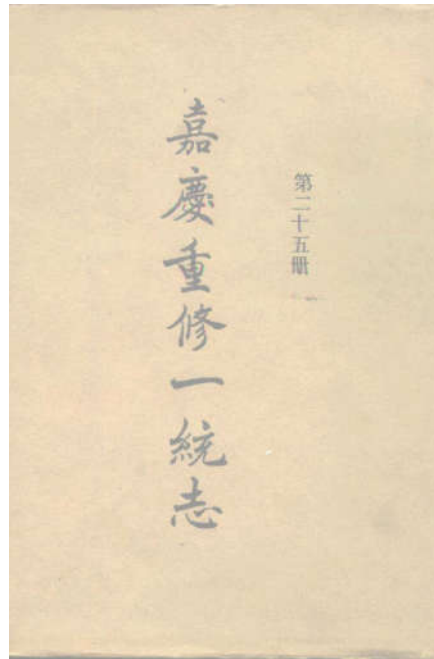 第二十五冊
嘉慶重修一統志